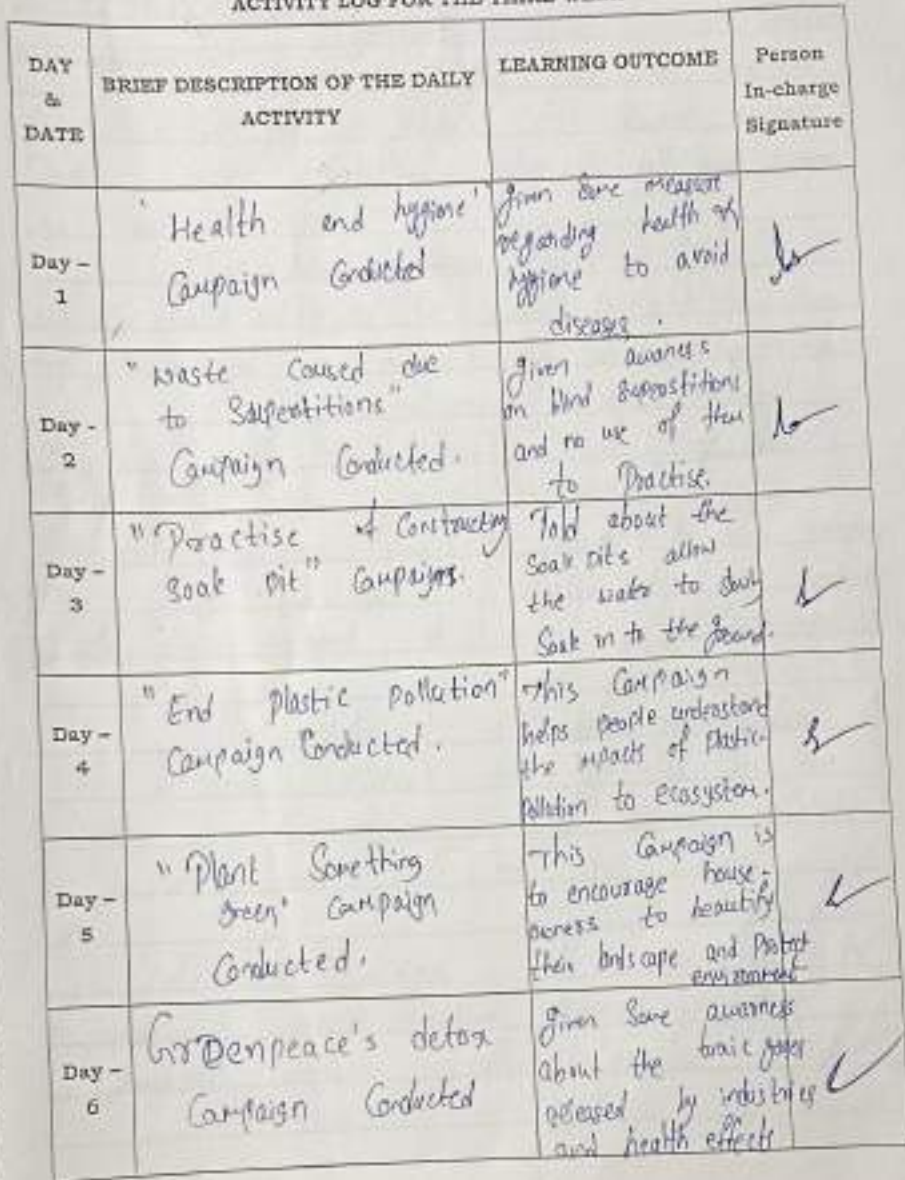 ACTIVITY LOG FOR THE THIRD
DAY
&
DATE
BRIEF DESCRIPTION OF THE DAILY
ACTIVITY
LEARNING OUTCOME
Person
In-charge
Signature
Day –
1
'Health and hygiene'
Campaign Conducted
given some measure
regarding health &
hygiene to avoid
diseases.
Day -
2
"waste Caused due
to Superstitions"
Campaign Conducted.
given awarness
on blind superstitions
and no use of them
to Practise.
Day –
3
"Practise of Constructing
soak pit" Campaign.
Told about the
Soak pits allow
the water to slowly
Soak in to the ground.
Day –
4
"End plastic pollution"
Campaign Conducted.
This Campaign
helps people understand
the impacts of plastic
pollution to ecosystem.
Day –
5
"Plant Something
green" Campaign
Conducted.
This Campaign is
to encourage house-
owners to beautify
their landscape and Protect
environment
Day –
6
Greenpeace's detox
Campaign Conducted
given Some awarness
about the toxic gases
released by industries
and health effects